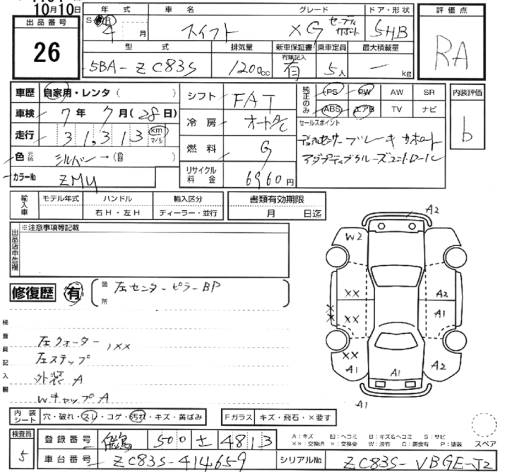 10月10日
出品番号
26
年式 車名 グレード ドア・形状
4 月 スイフト XG セーフティサポート 5HB
評価点
RA
型式 排気量 新車保証書 乗車定員 最大積載量
5BA-ZC83S 1200cc 有 5人 kg
車歴 自家用・レンタ ( )
車検 7年 7月(28日)
走行 31,313 km
色 シルバー ( )
カラーNo ZMU
シフト FAT
冷房 オートAC
燃料 G
リサイクル料金 6960円
純正のみ PS PW AW SR
ABS エアB TV ナビ
セールスポイント
デュアルセンサーブレーキサポート
アダプティブクルーズコントロール
内装評価
b
輸入車 モデル年式 ハンドル 輸入区分
右H・左H ディーラー・並行
書類有効期限
月 日迄
※注意事項等記載
修復歴 有
箇所
左センターピラーBP
検査員記入欄
左クォーター,××
左ステップ
外装 A
WキャップA
A2
W2
A2
××
××
××
A1
A1
A1
A2
A2
内装シート 穴・破れ・スレ・コゲ・汚れ・キズ・黄ばみ
Fガラス キズ・飛石・×要す
検査員
5
登録番号 500 4813
車台番号 ZC83S-414659
シリアルNo ZC83S-VBGE-J2
スペア